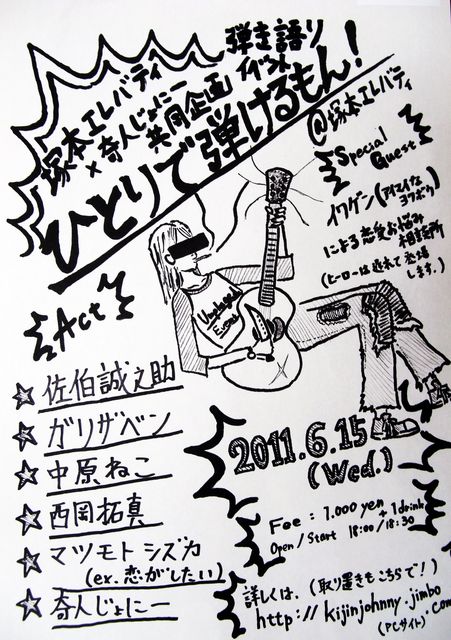 塚本エレバティ
×奇人じょにー
共同企画
弾き語り
イベント
ひとりで弾けるもん!
@塚本エレバティ
Special
Guest
イワゲン(アイマイな
ヨワボク)
による恋愛お悩み
相談所
(ヒーローは遅れて登場
します。)
Act
Unplugged
☆佐伯誠之助
☆ガリザベン
☆中原ねこ
☆西岡拓真
☆マツモトシズカ
(ex.恋がしたい)
☆奇人じょにー
2011.6.15
(Wed.)
Fee : 1.000 yen + 1drink
Open / Start 18:00 / 18:30
詳しくは、(取り置きもこちらで!)
http://kijinjohnny.jimbo.com
(PCサイト)